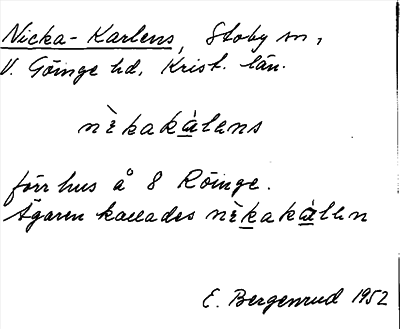 Nicka-Karlens, Stoby sn,
V. Göinge hd, Krist. län.
nὲkakàlens
förr hus å 8 Röinge.
Ägaren kallades nὲkakàlen
E. Bergenrud 1952